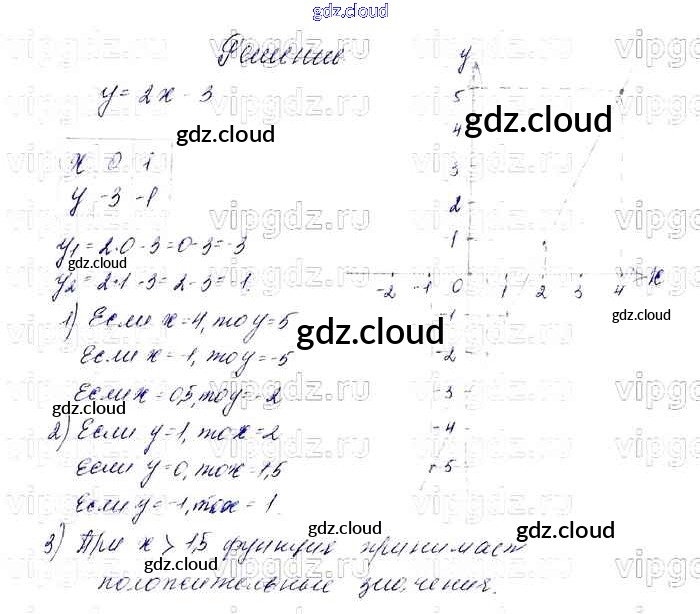 gdz.cloud
Решение
y = 2x - 3
gdz.cloud
x 0 1
y -3 -1
y₁ = 2·0 - 3 = 0 - 3 = -3
gdz.cloud
y₂ = 2·1 - 3 = 2 - 3 = -1.
1) Если x = 4, то y = 5
Если x = -1, то y = -5
Если x = 0,5, то y = -2
gdz.cloud
2) Если y = 1, то x = 2
Если y = 0, то x = 1,5
Если y = -1, то x = 1
3) При x > 1,5 функция принимает
положительные значения.
gdz.cloud
gdz.cloud
y
5
4
gdz.cloud
3
2
1
-2 -1 0 1 2 3 4 x
gdz.cloud
-1
gdz.cloud
-2
-3
-4
-5
gdz.cloud
vipgdz.ru